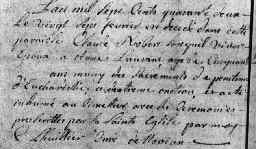 L'an mil sept cents quarante deux
Le vingt sept fevrier est decedé dans cette
parroisse Claude Robert Lorsquil vivoit
Epoux a Laurent agée de Cinquante
ans muny des Sacrements de penitence
d'Eucharistie, et extreme onction, et a eté
inhumé au Cimetier avec les Ceremonies
prescrittes par la Sainte Eglise par moy
Lhuillier Curé de